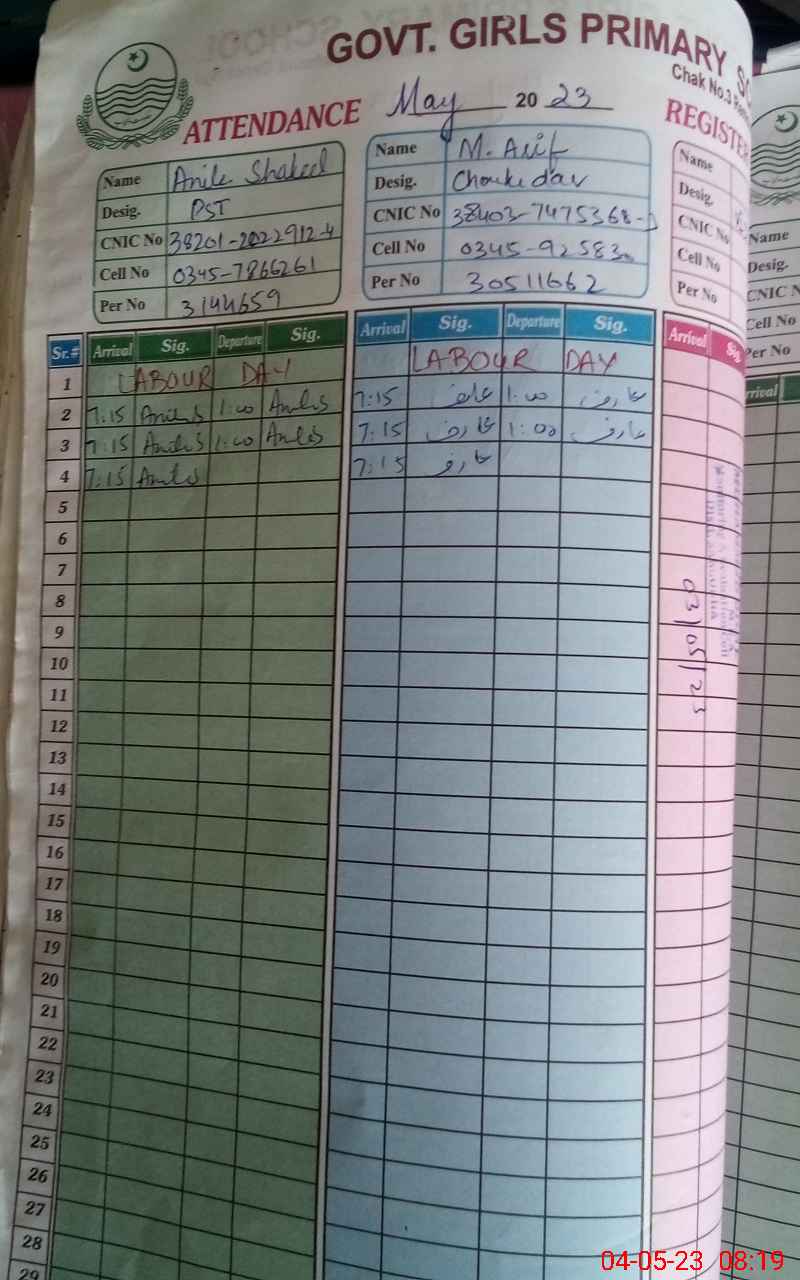 GOVT. GIRLS PRIMARY
Chak No.3
ATTENDANCE May 2023 REGISTER
Name Anila Shakeel
Desig. PST
CNIC No 38201-2022912-4
Cell No 0345-7866261
Per No 3144659
Name M. Arif
Desig. Choukedar
CNIC No 38403-7475368-
Cell No 0345-92583
Per No 30511662
Name
Desig.
CNIC No
Cell No
Per No
Name
Desig.
CNIC N
Cell No
Per No
Sr.# Arrival Sig. Departure Sig. Arrival Sig. Departure Sig. Arrival Sig
1 LABOUR DAY LABOUR DAY
2 7:15 1:00 7:15 عارف 1:00 عارف
3 7:15 1:00 7:15 عارف 1:00 عارف
4 7:15 7:15 عارف
5
6
7
8
9
10
11
12
13
14
15
16
17
18
19
20
21
22
23
24
25
26
27
28
29
03/05/23
04-05-23 08:19